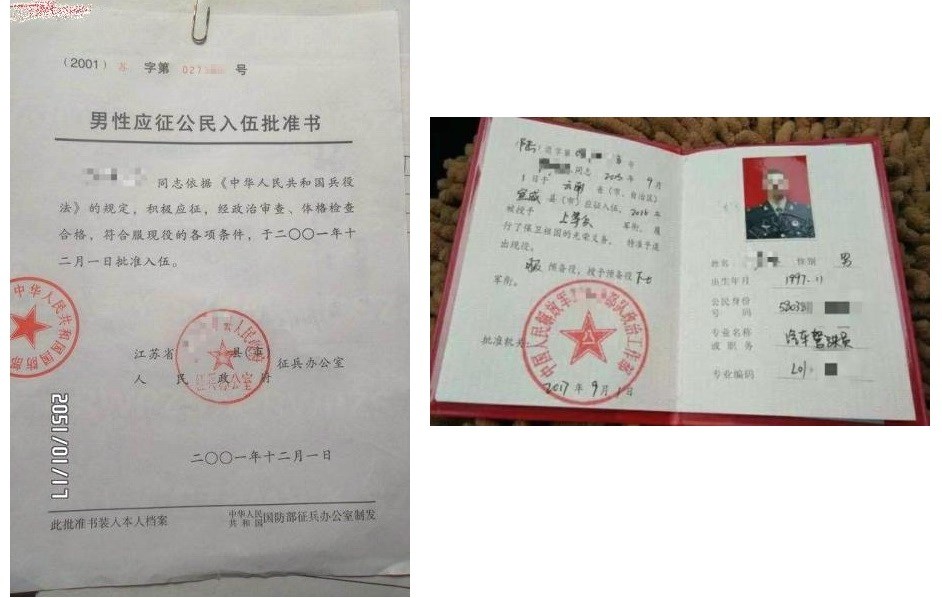 (2001) 苏 字第 027 号
男性应征公民入伍批准书
同志依据《中华人民共和国兵役
法》的规定，积极应征，经政治审查、体格检查
合格，符合服现役的各项条件，于二〇〇一年十
二月一日批准入伍。
中华人民共和国国防部
江苏省 县(市) 征兵办公室
人民政府
二〇〇一年十二月一日
2051/01/17
此批准书装入本人档案
中华人民共和国国防部征兵办公室制发
退字第 号
同志 2015 年 9 月
1 日于 云南 省(市、自治区)
宣威 县(市)应征入伍, 2016 年
被授予 上等兵 军衔，履
行了保卫祖国的光荣义务，特准予退
出现役。
服 预备役，授予预备役 下士
军衔。
批准机关:
中国人民解放军 部队政治工作部
2017 年 9 月 1 日
姓名 性别 男
出生年月 1997.11
公民身份
号码
专业名称
或职务 汽车驾驶员
专业编码